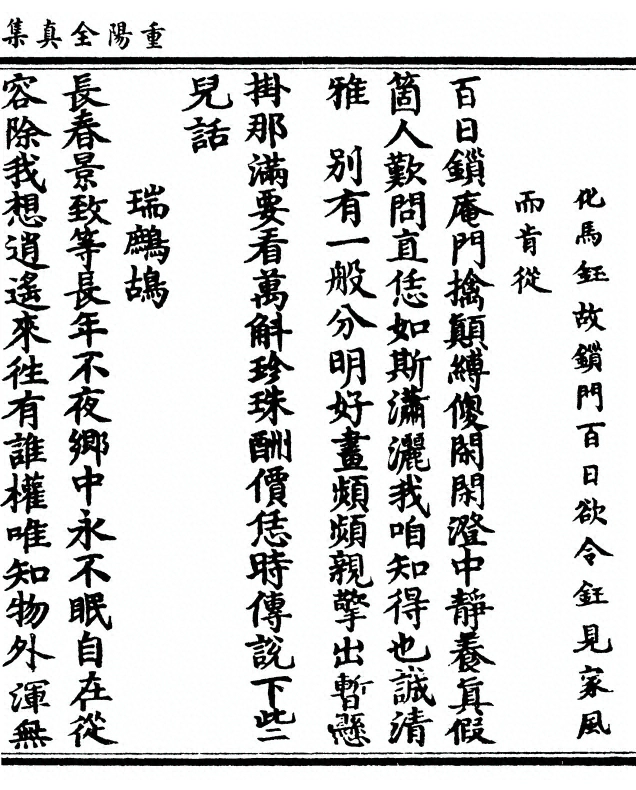 重陽全真集
化馬鈺故鎖門百日欲令鈺見家風
而肯從
百日鎖庵門擒顛縛傻閑閑澄中靜養真假
箇人歎問直恁如斯瀟灑我咱知得也誠清
雅　別有一般分明好畫頻頻親擎出暫懸
掛那滿要看萬斛珍珠酬價恁時傳說下些
兒話
瑞鷓鴣
長春景致等長年不夜鄉中永不眠自在從
容除我想逍遙來徃有誰權唯知物外渾無